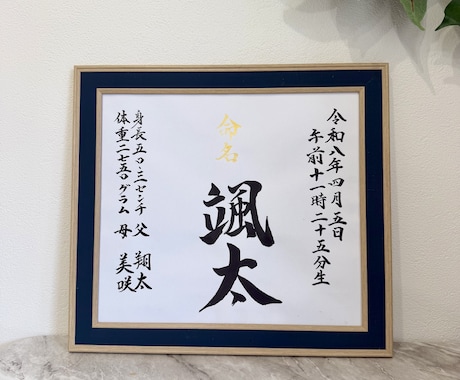 令和八年四月五日
午前十一時二十五分生
命名
颯太
身長五〇・三センチ 父 翔太
体重二七五〇グラム 母 美咲